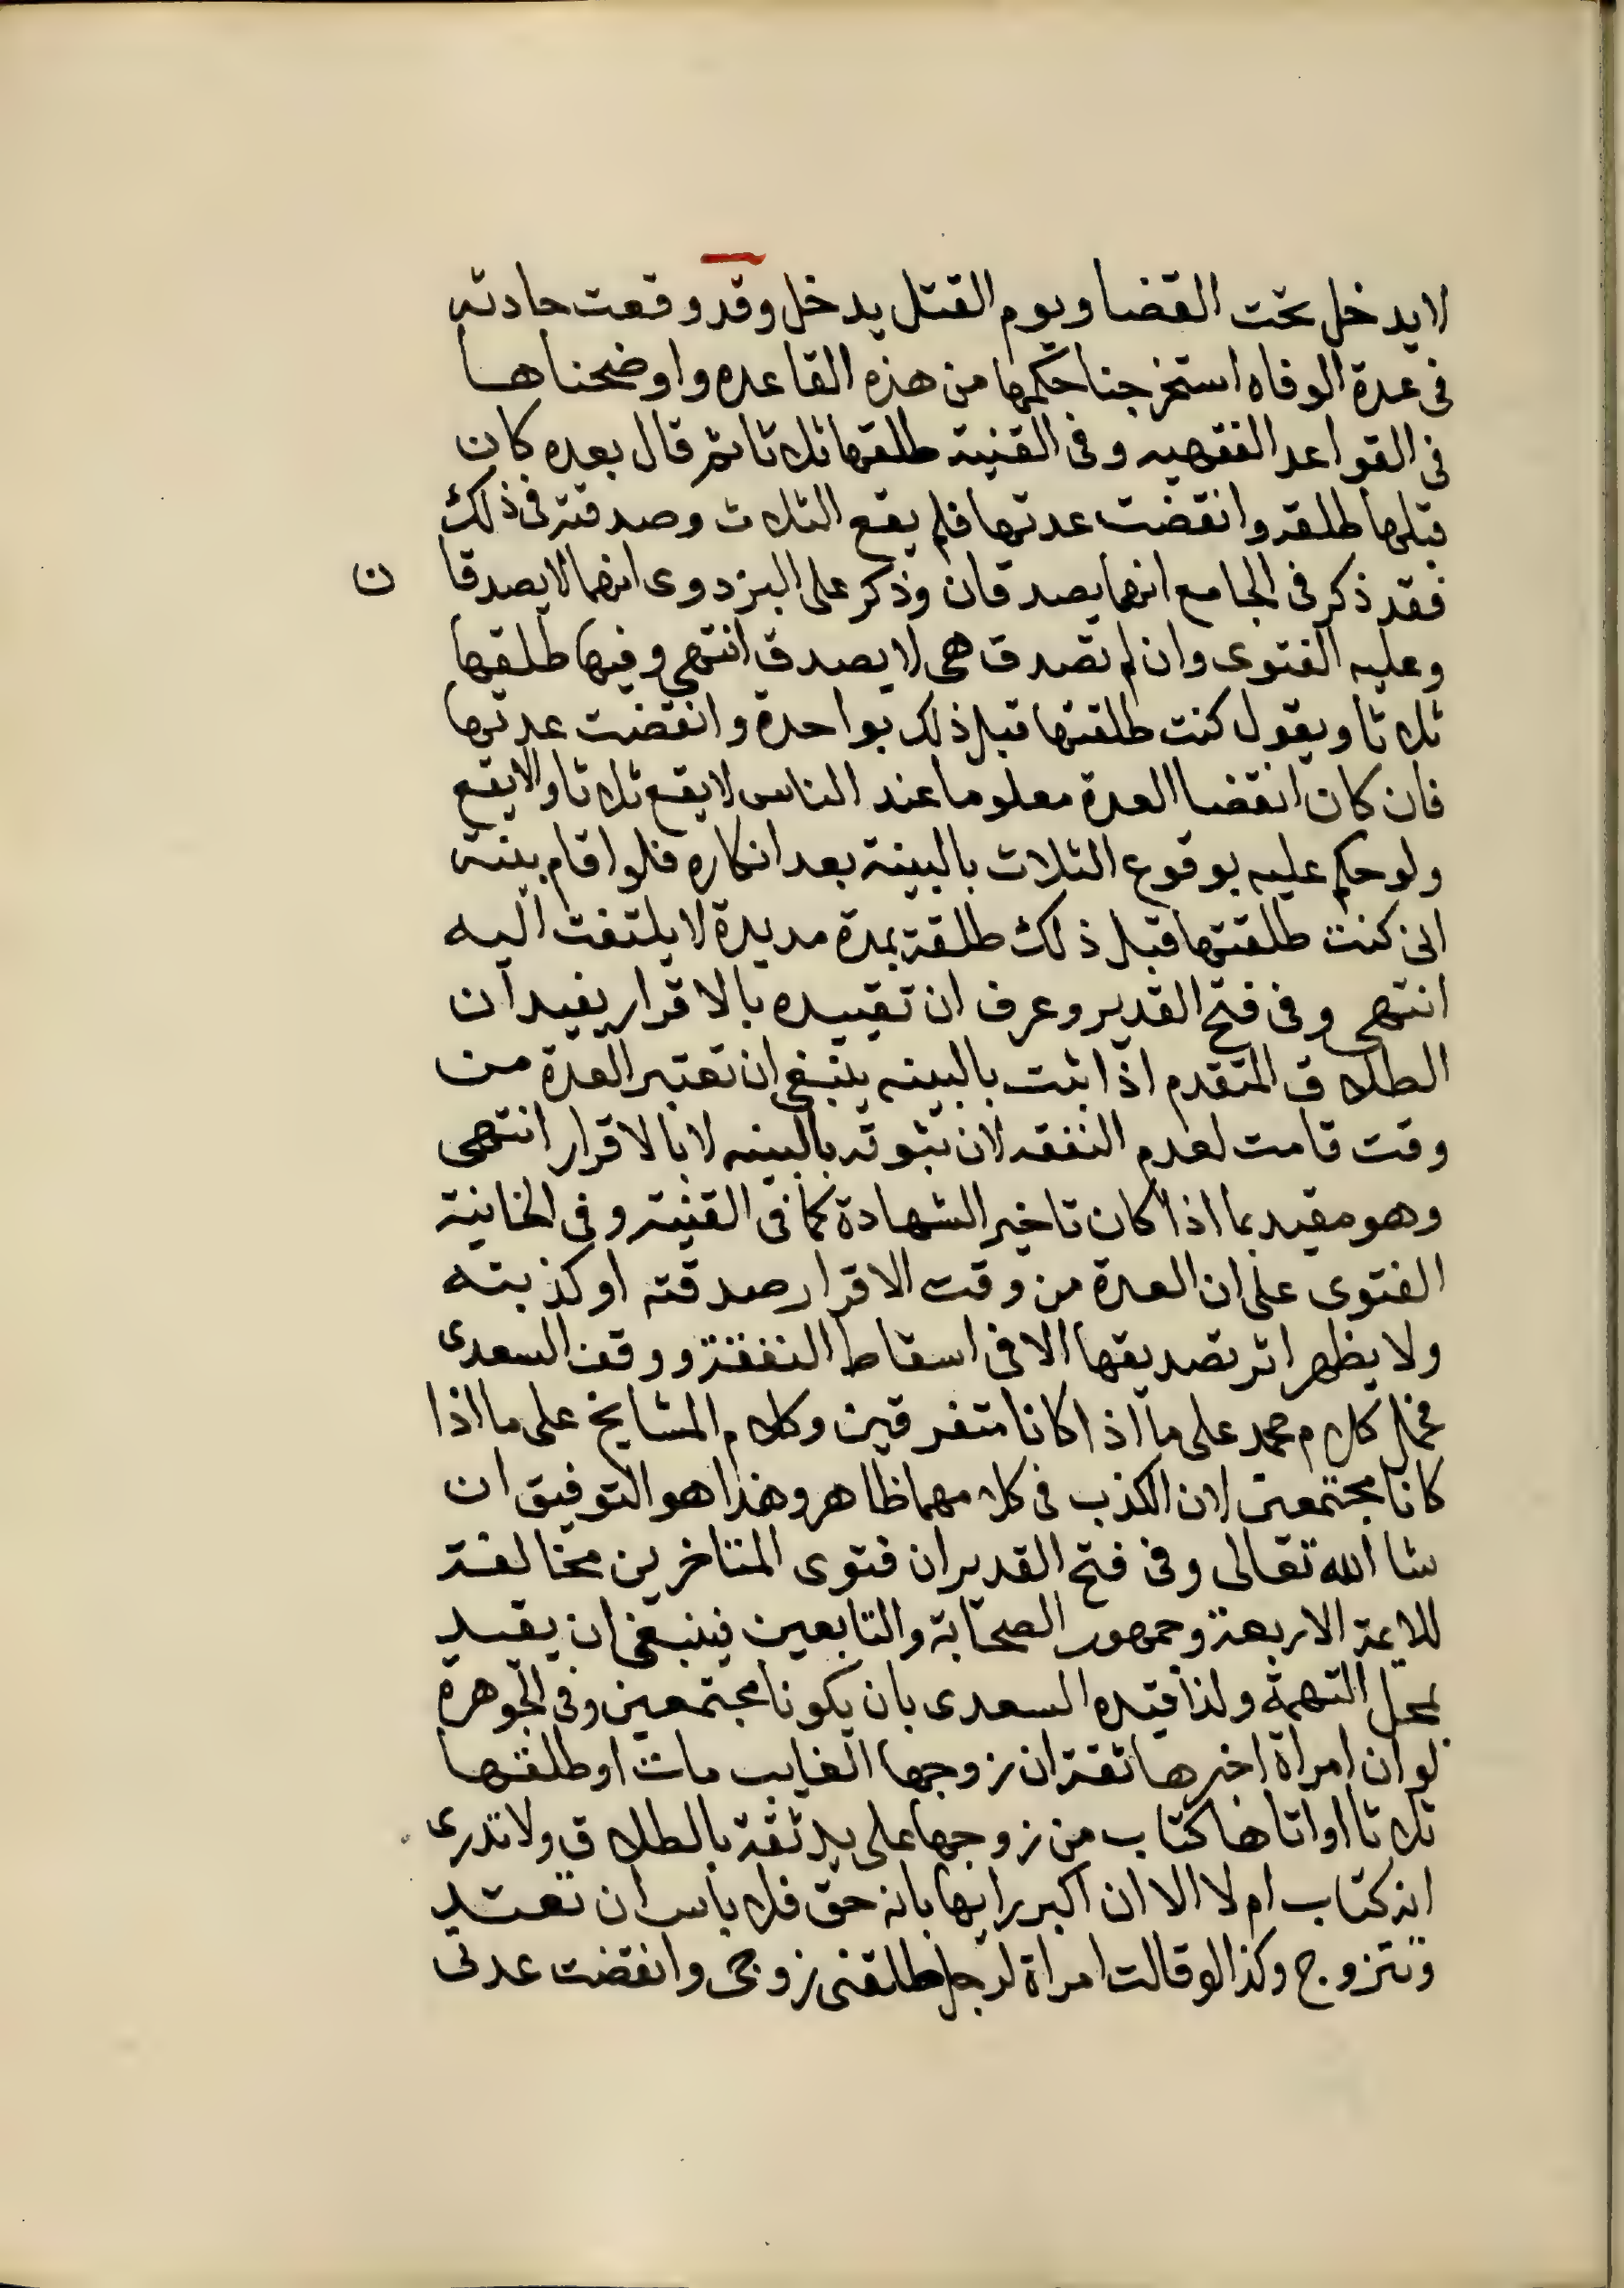 لا يدخل تحت القضا ويوم القتل يدخل وقد وقعت حادثه
فى عدة الوفاه استخرجنا حكمها من هذه القاعده واوضحناها
فى القواعد الفقهيه وفى القنية طلقها ثلاثا ثم قال بعده كان
قبلها طلقة وانقضت عدتها فلم يقع الثلاث وصدقته فى ذلك
فقد ذكر فى الجامع انهما يصدقان وذكر على البزدوى انهما لا يصدقان
وعليه الفتوى وان لم تصدق هى لا يصدق انتهى وفيها طلقها
ثلاثا ويقول كنت طلقتها قبل ذلك بواحدة وانقضت عدتها
فان كان انقضا العدة معلوما عند الناس لا يقع ثلاثا والا يقع
ولو حكم عليه بوقوع الثلاث بالبينة بعد انكاره فلو اقام بينة
انى كنت طلقتها قبل ذلك طلقة بمدة مديدة لا يلتفت اليه
انتهى وفى فتح القدير وعرف ان تقييده بالاقرار يفيد ان
الطلاق المتقدم اذا ثبت بالبينه ينبغى ان تعتبر العدة من
وقت قامت لعدم النفقه لان ثبوته بالبينه لا بالاقرار انتهى
وهو مقيد بما اذا كان تاخير الشهادة كما فى القنية وفى الخانية
الفتوى على ان العدة من وقت الاقرار صدقته او كذبته
ولا يظهر اثر تصديقها الا فى اسقاط النفقة ووفق السعدى
فحمل كلام محمد على ما اذا كانا متفرقين وكلام المشايخ على ما اذا
كانا مجتمعين لان الكذب فى كلامهما ظاهر وهذا هو التوفيق ان
شا الله تعالى وفى فتح القدير ان فتوى المتاخرين مخالفة
للائمة الاربعة وجمهور الصحابة والتابعين فينبغى ان يقيد
بمحل التهمة ولذا قيده السعدى بان يكونا مجتمعين وفى الجوهرة
لو ان امراة اخبرها ثقة ان زوجها الغايب مات او طلقها
ثلاثا او اتاها كتاب من زوجها على يد ثقة بالطلاق ولا تدرى
انه كتاب ام لا الا ان اكبر رايها بانه حق فلا باس ان تعتد
وتتزوج وكذا لو قالت امراة لرجل طلقنى زوجى وانقضت عدتى